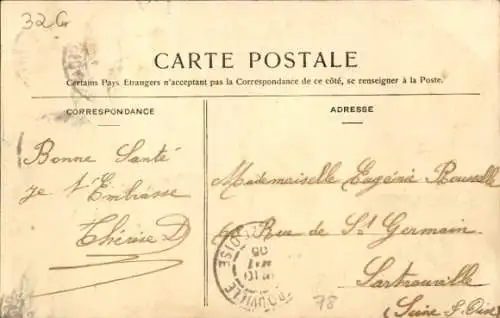 32G
CARTE POSTALE
Certains Pays Etrangers n'acceptant pas la Correspondance de ce côté, se renseigner à la Poste.
CORRESPONDANCE
ADRESSE
Bonne Santé
je t'Embrasse
Thérèse D
Mademoiselle Eugénie
Rue de St Germain
Sartrouville
(Seine & Oise
78